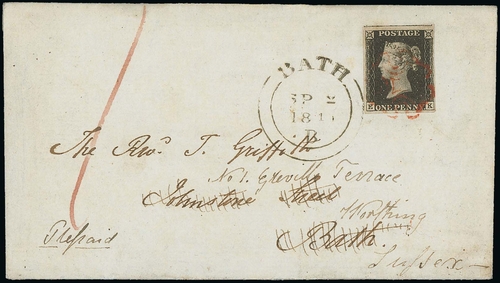 BATH
POSTAGE
SP
18
B
E ONE PENNY K
The Revd. T. Griffith
No 1. Greville Terrace
Johnstone Street
Worthing
Bath.
Prepaid
Sussex